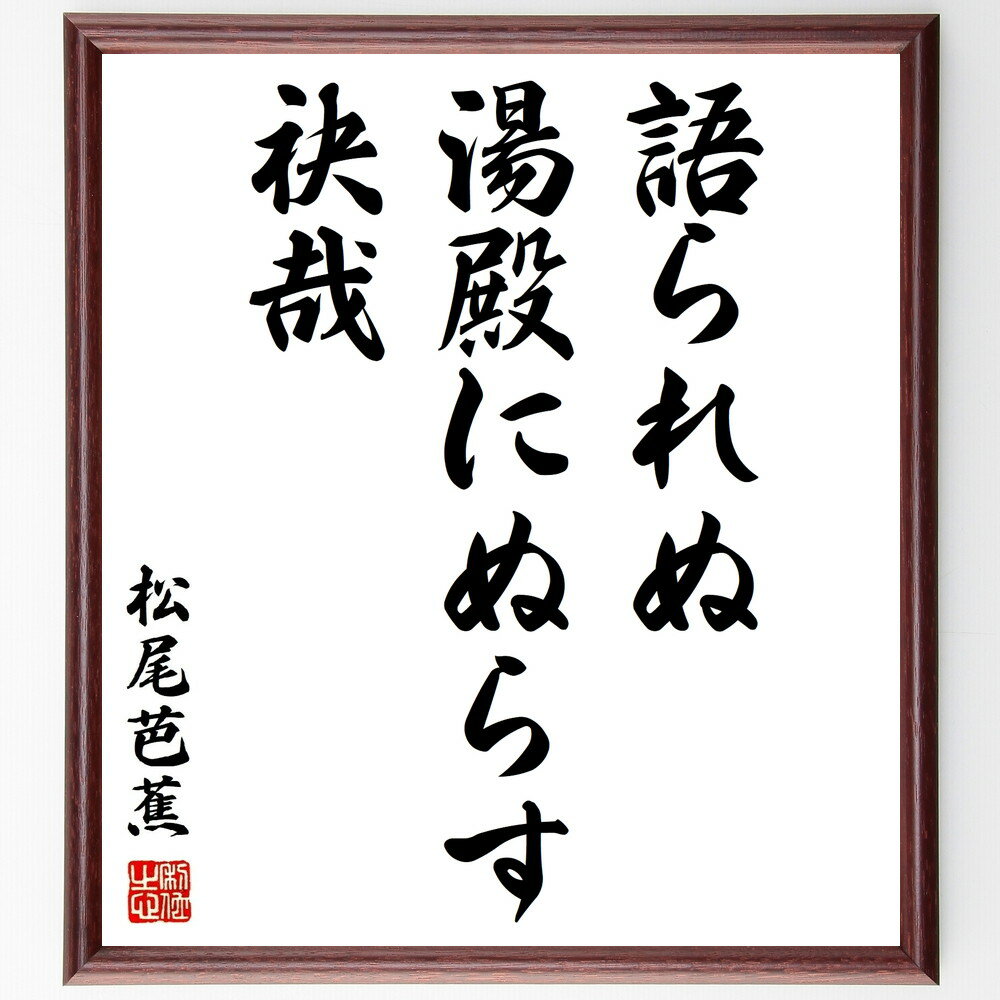 語られぬ
湯殿にぬらす
袂哉
松尾芭蕉